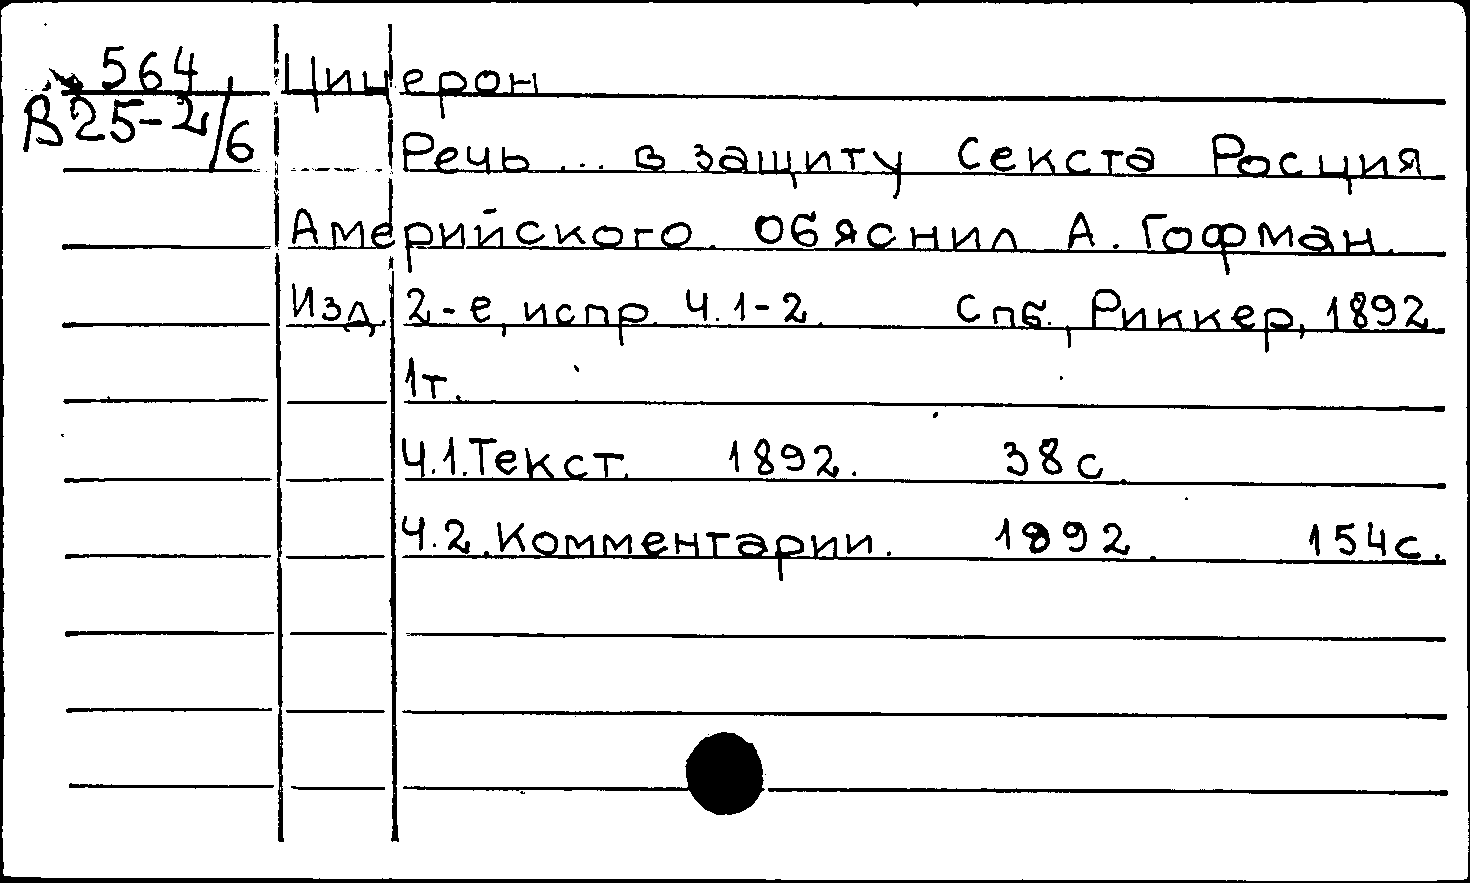 564 Цицерон
В25-2/6
Речь ... в защиту Секста Росция
Америйского. Обяснил А. Гофман.
Изд. 2-е, испр. Ч.1-2. Спб., Риккер, 1892
1т.
Ч.1. Текст. 1892. 38с.
Ч.2. Комментарии. 1892. 154с.